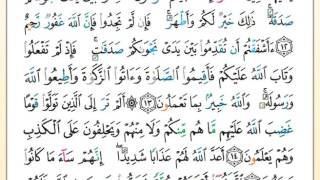 صَدَقَةً ذَٰلِكَ خَيْرٌ لَّكُمْ وَأَطْهَرُ فَإِن لَّمْ تَجِدُوا۟ فَإِنَّ ٱللَّهَ غَفُورٌ رَّحِيمٌ
١٢ ءَأَشْفَقْتُمْ أَن تُقَدِّمُوا۟ بَيْنَ يَدَىْ نَجْوَىٰكُمْ صَدَقَٰتٍ فَإِذْ لَمْ تَفْعَلُوا۟
وَتَابَ ٱللَّهُ عَلَيْكُمْ فَأَقِيمُوا۟ ٱلصَّلَوٰةَ وَءَاتُوا۟ ٱلزَّكَوٰةَ وَأَطِيعُوا۟ ٱللَّهَ
وَرَسُولَهُۥ وَٱللَّهُ خَبِيرٌۢ بِمَا تَعْمَلُونَ ١٣ أَلَمْ تَرَ إِلَى ٱلَّذِينَ تَوَلَّوْا۟ قَوْمًا
غَضِبَ ٱللَّهُ عَلَيْهِم مَّا هُم مِّنكُمْ وَلَا مِنْهُمْ وَيَحْلِفُونَ عَلَى ٱلْكَذِبِ
وَهُمْ يَعْلَمُونَ ١٤ أَعَدَّ ٱللَّهُ لَهُمْ عَذَابًا شَدِيدًا إِنَّهُمْ سَآءَ مَا كَانُوا۟